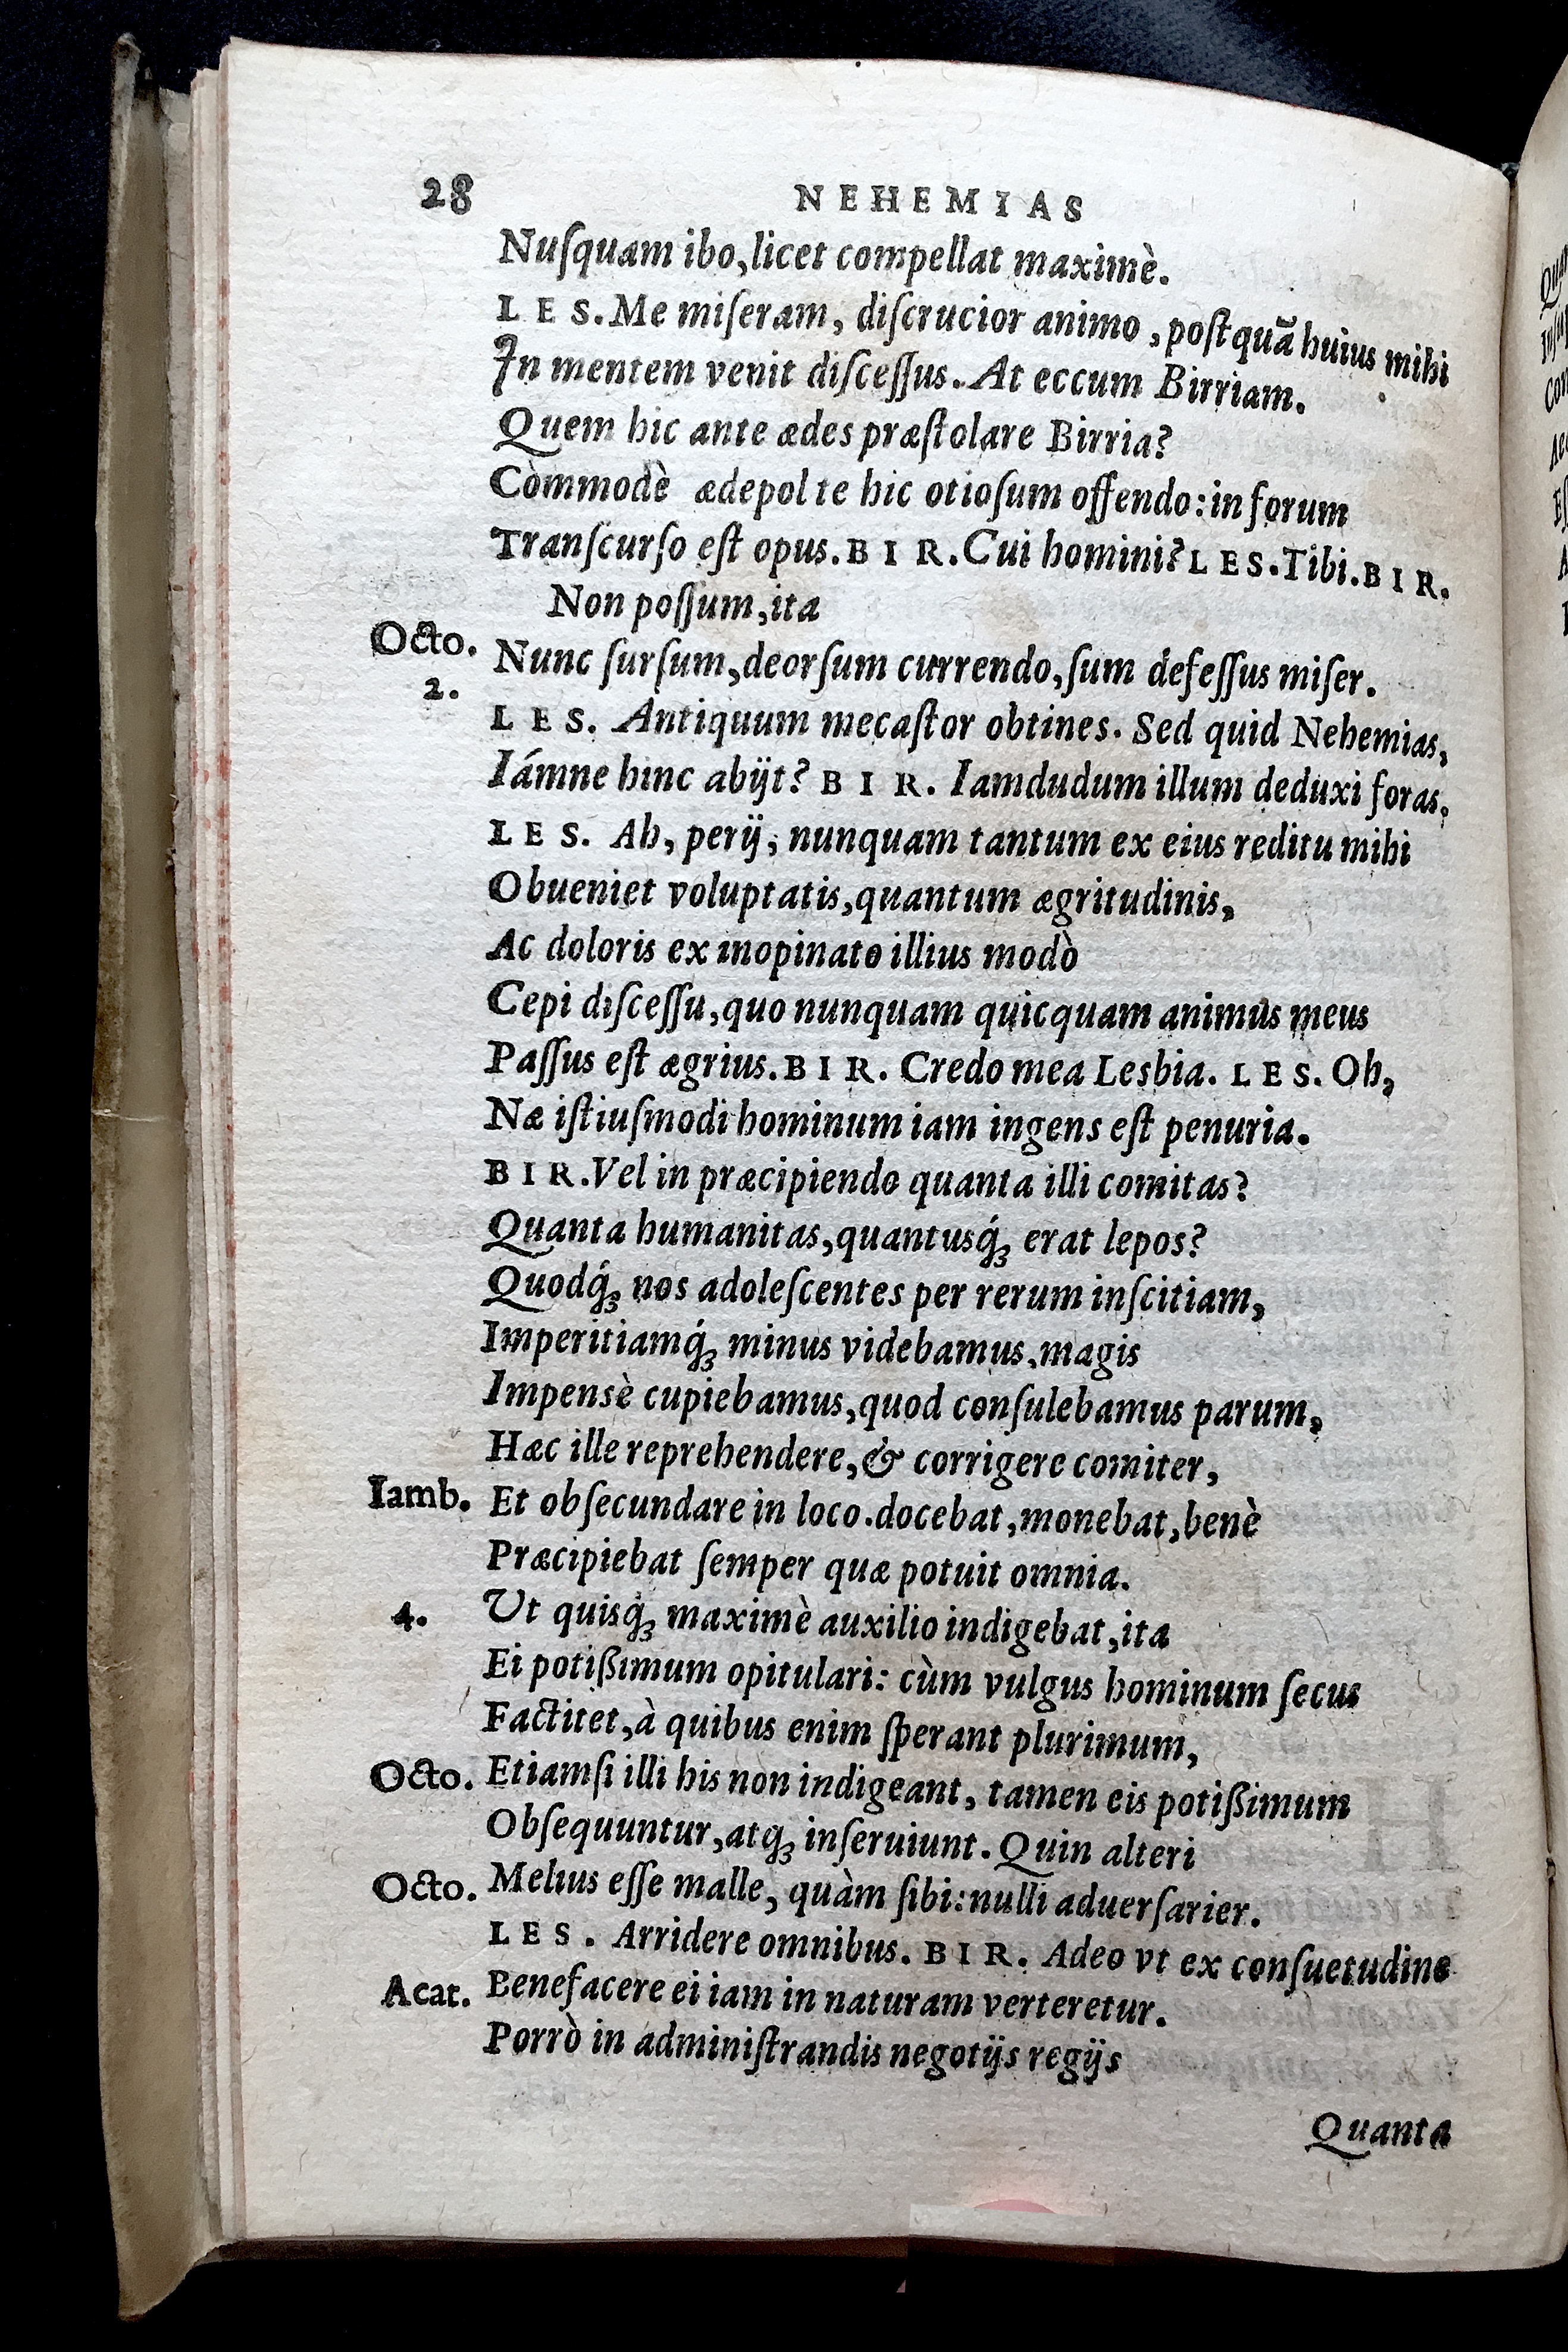 28 NEHEMIAS
Nuſquam ibo,licet compellat maximè.
LES. Me miſeram, diſcrucior animo, poſtquã huius mihi
In mentem venit diſceſſus. At eccum Birriam.
Quem hic ante ædes præſtolare Birria?
Còmmodè ædepol te hic otioſum offendo: in forum
Tranſcurſo eſt opus. BIR. Cui homini? LES. Tibi. BIR.
Non poſſum, ita
Octo. Nunc ſurſum, deorſum currendo, ſum defeſſus miſer.
2. LES. Antiquum mecaſtor obtines. Sed quid Nehemias,
Iámne hinc abijt? BIR. Iamdudum illum deduxi foras.
LES. Ah, perij, nunquam tantum ex eius reditu mihi
Obueniet voluptatis, quantum ægritudinis,
Ac doloris ex inopinato illius modò
Cepi diſceſſu, quo nunquam quicquam animus meus
Paſſus eſt ægrius. BIR. Credo mea Lesbia. LES. Oh,
Næ iſtiuſmodi hominum iam ingens eſt penuria.
BIR. Vel in præcipiendo quanta illi comitas?
Quanta humanitas, quantusq́ꝫ erat lepos?
Quodq́ꝫ nos adoleſcentes per rerum inſcitiam,
Imperitiamq́ꝫ minus videbamus, magis
Impensè cupiebamus, quod conſulebamus parum,
Hæc ille reprehendere, & corrigere comiter,
Iamb. Et obſecundare in loco. docebat, monebat, benè
Præcipiebat ſemper quæ potuit omnia.
4. Ut quisq́ꝫ maximè auxilio indigebat, ita
Ei potißimum opitulari: cùm vulgus hominum ſecus
Factitet, à quibus enim ſperant plurimum,
Octo. Etiamſi illi his non indigeant, tamen eis potißimum
Obſequuntur, atqꝫ inſeruiunt. Quin alteri
Octo. Melius eſſe malle, quàm ſibi: nulli aduerſarier.
LES. Arridere omnibus. BIR. Adeo vt ex conſuetudine
Acat. Benefacere ei iam in naturam verteretur.
Porrò in adminiſtrandis negotijs regijs
Quanta